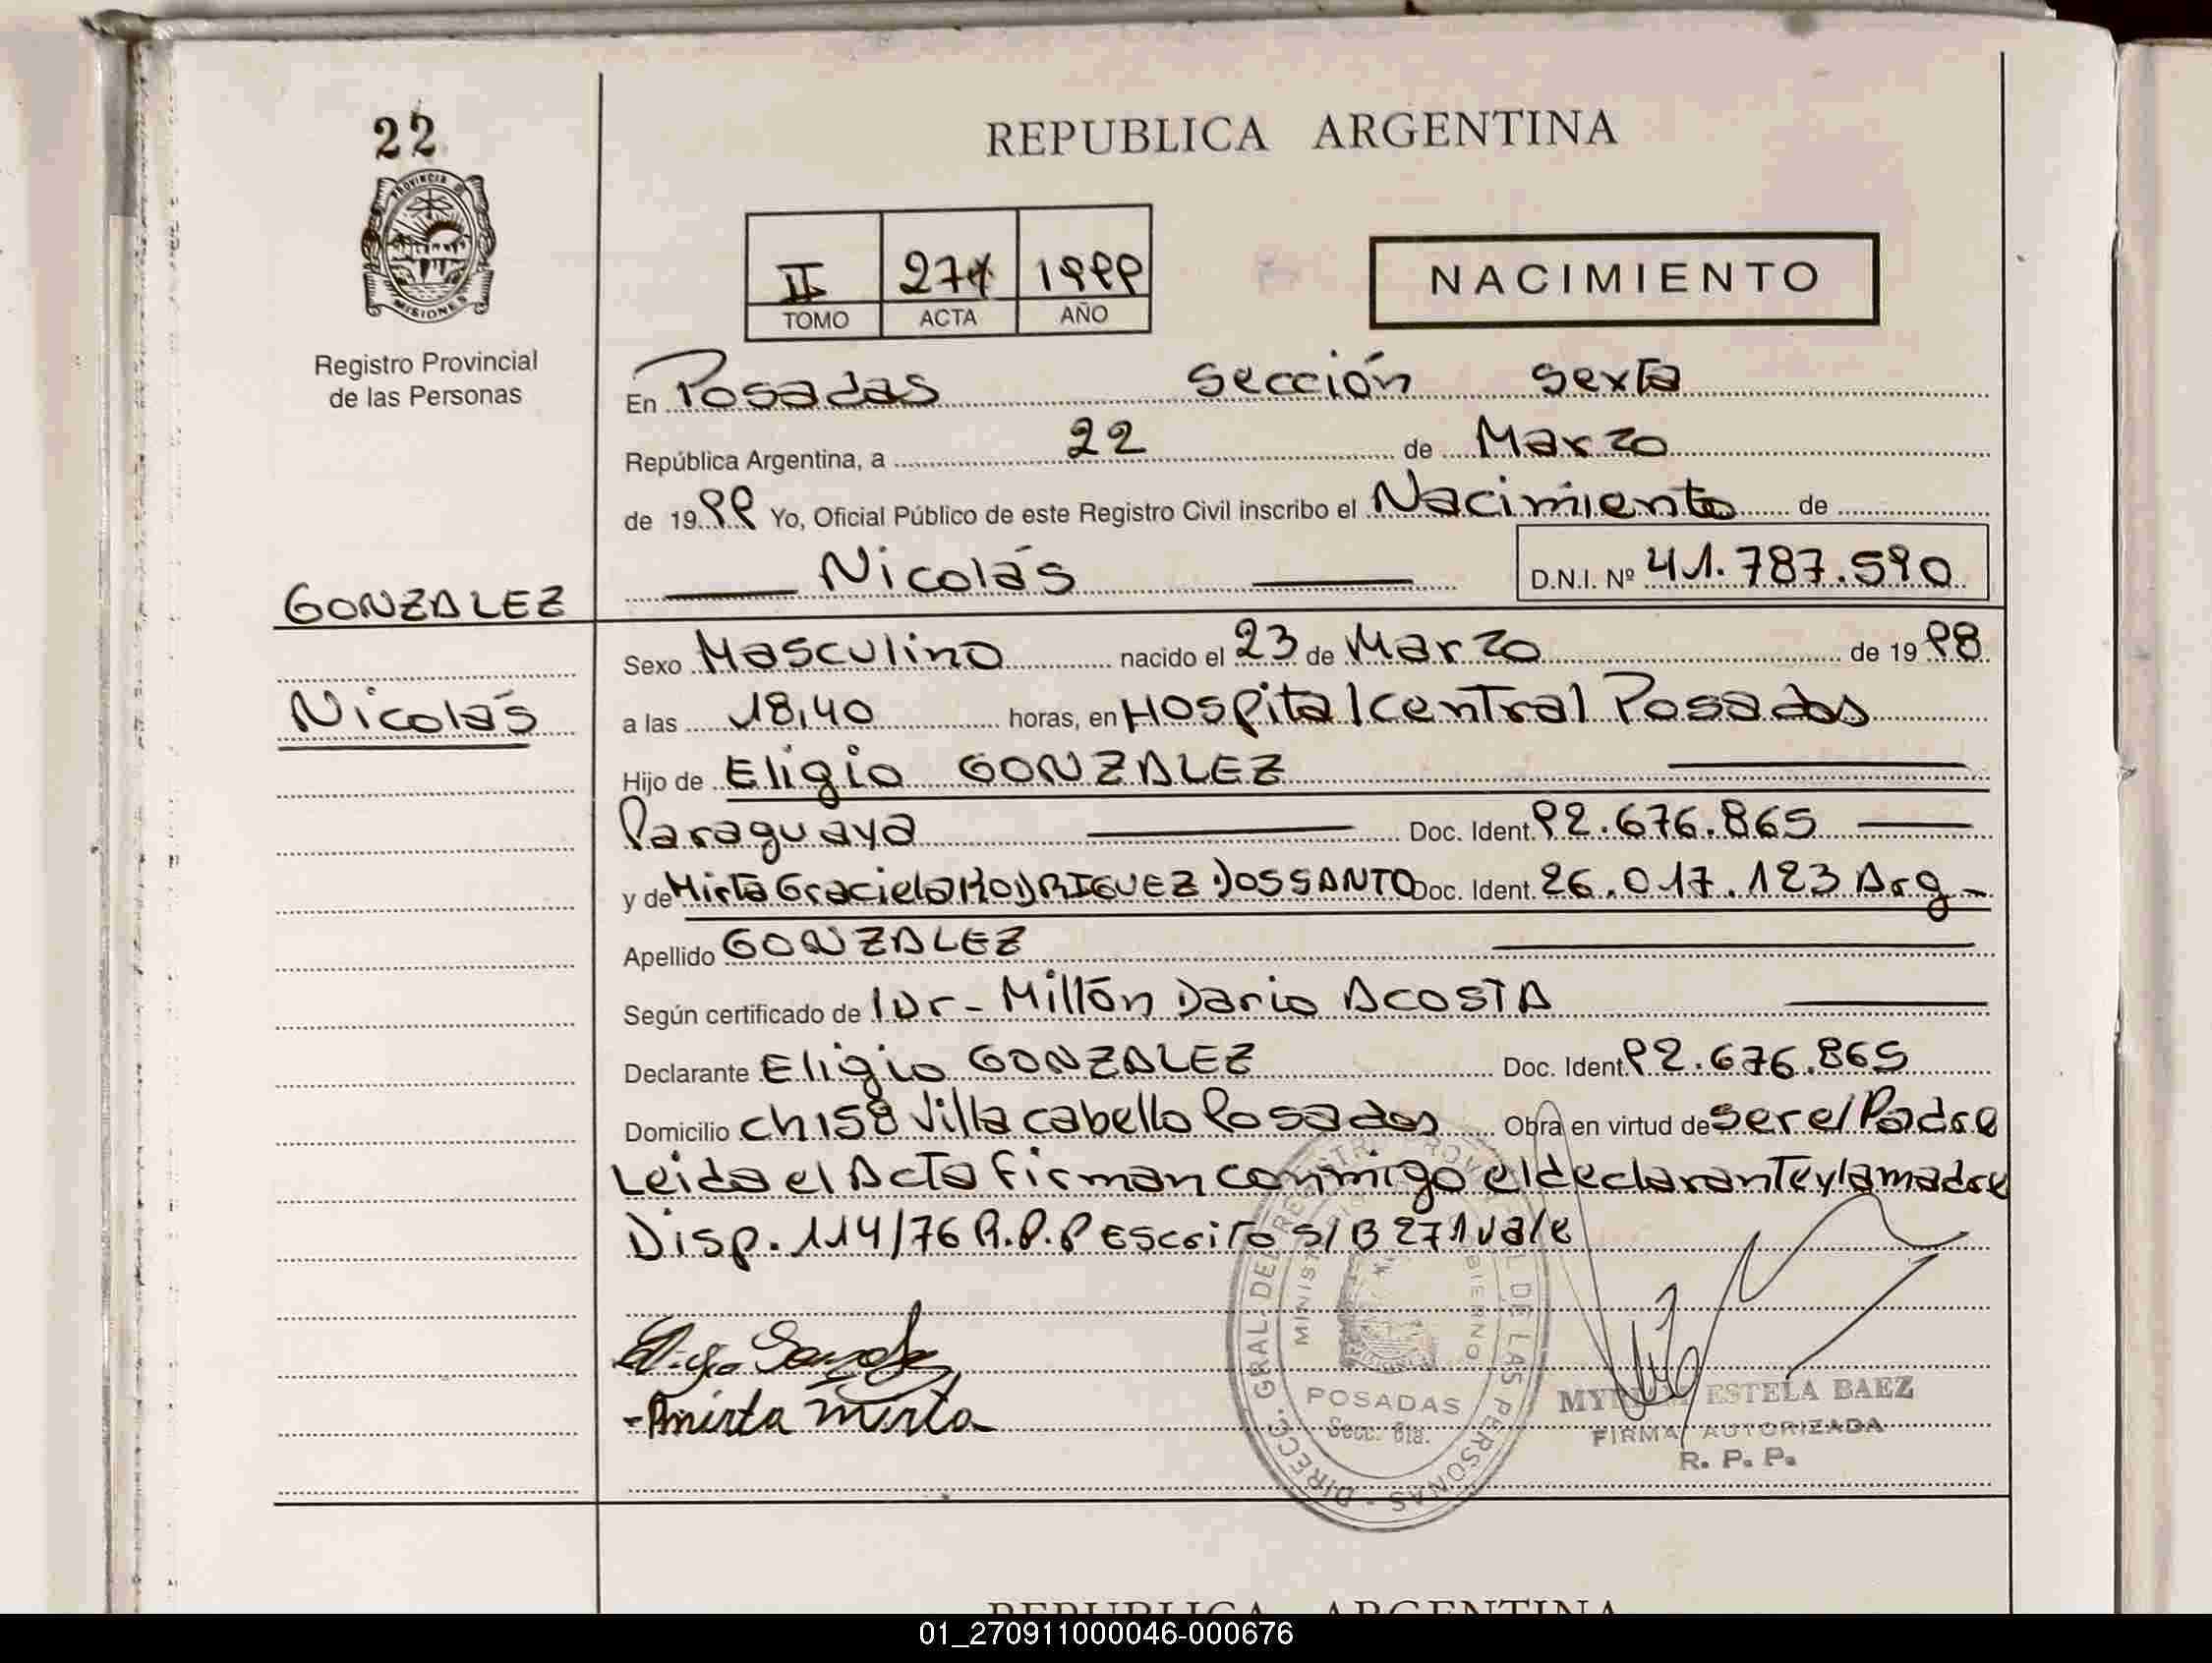 22
PROVINCIA
MISIONES
Registro Provincial
de las Personas
REPUBLICA ARGENTINA
II 271 1999
TOMO ACTA AÑO
NACIMIENTO
En Posadas Sección Sexta
República Argentina, a 22 de Marzo
de 1999 Yo, Oficial Público de este Registro Civil inscribo el Nacimiento de
Nicolás D.N.I. Nº 41.787.590
GONZALEZ
Nicolás
Sexo Masculino nacido el 23 de Marzo de 1998
a las 18,40 horas, en Hospital Central Posadas
Hijo de Eligio GONZALEZ
Paraguaya Doc. Ident. 92.676.865
y de Mirta Graciela RODRIGUEZ DOSSANTO Doc. Ident. 26.017.123 Arg-
Apellido GONZALEZ
Según certificado de Dr- Millón Dario ACOSTA
Declarante Eligio GONZALEZ Doc. Ident. 92.676.865
Domicilio ch158 Villa cabello Posadas Obra en virtud de ser el Padre
Leida el Acta firman conmigo el declarante y la madre
Disp. 114/76 R.P.P Escrito s/B 271 vale
Mirta
DIRECC. GRAL. DEL REGISTRO PROVINCIAL DE LAS PERSONAS
POSADAS
Secc. 6ta.
ESTELA BAEZ
FIRMA AUTORIZADA
R. P. P.
REPUBLICA ARGENTINA
01_270911000046-000676